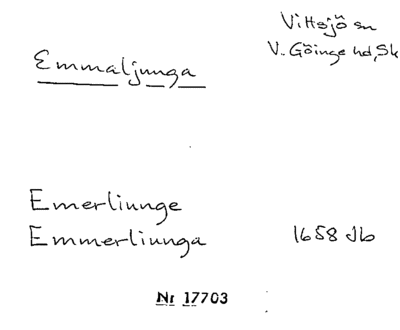 Vittsjö sn
V. Göinge hd, Sk
Emmaljunga
Emerliunge
Emmerliunga 1658 Jb
Nr 17703